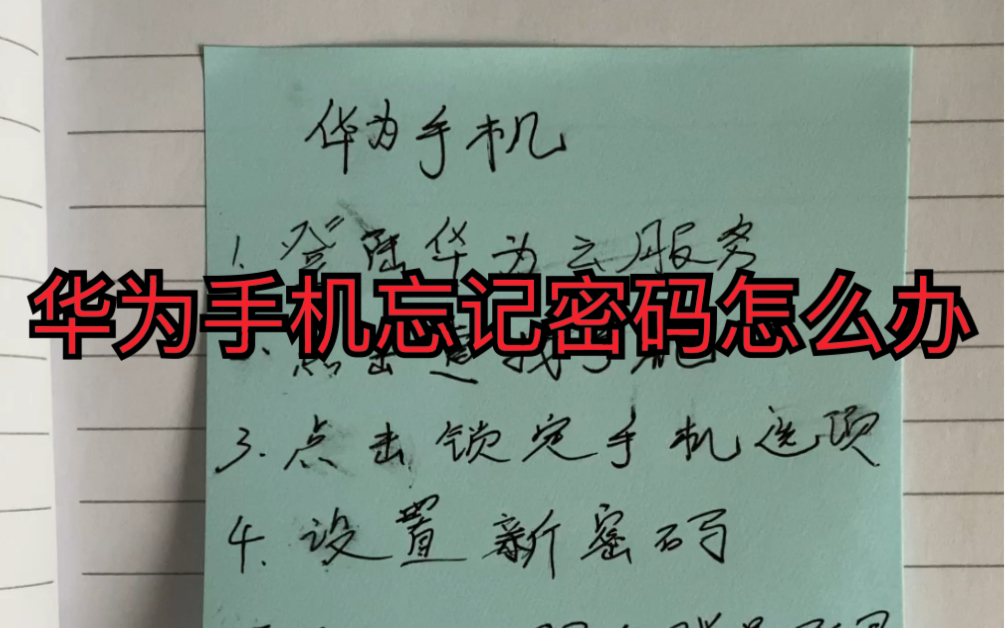 华为手机
1. 登陆华为云服务
华为手机忘记密码怎么办
点击查找手机
3. 点击锁定手机选项
4. 设置新密码